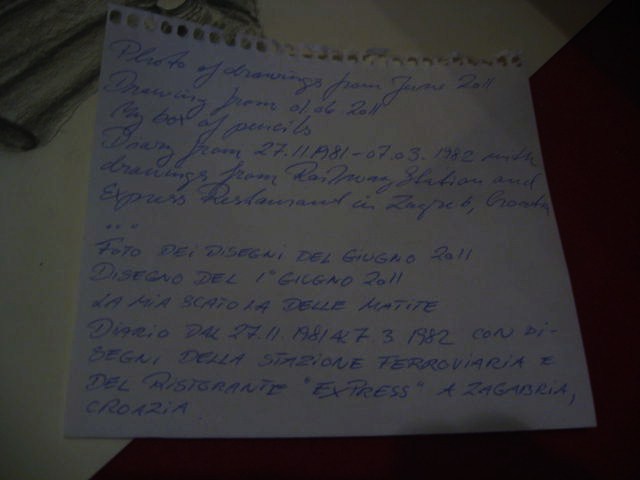 Photo of drawings from June 2011
Drawing from 01.06.2011
My box of pencils
Diary from 27.11.1981-07.03.1982 with
drawings from Railway Station and
Express Restaurant in Zagreb, Croatia
...
FOTO DEI DISEGNI DEL GIUGNO 2011
DISEGNO DEL 1° GIUGNO 2011
LA MIA SCATOLA DELLE MATITE
DIARIO DAL 27.11.1981 AL 7.3 1982 CON DI-
SEGNI DELLA STAZIONE FERROVIARIA E
DEL RISTORANTE "EXPRESS" A ZAGABRIA,
CROAZIA.